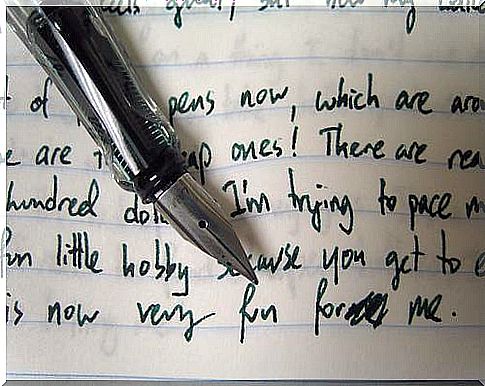 but now my
of pens now, which are
are ones! There are
hundred I'm trying to pace
fun little hobby because you get to
is now very fun for me.